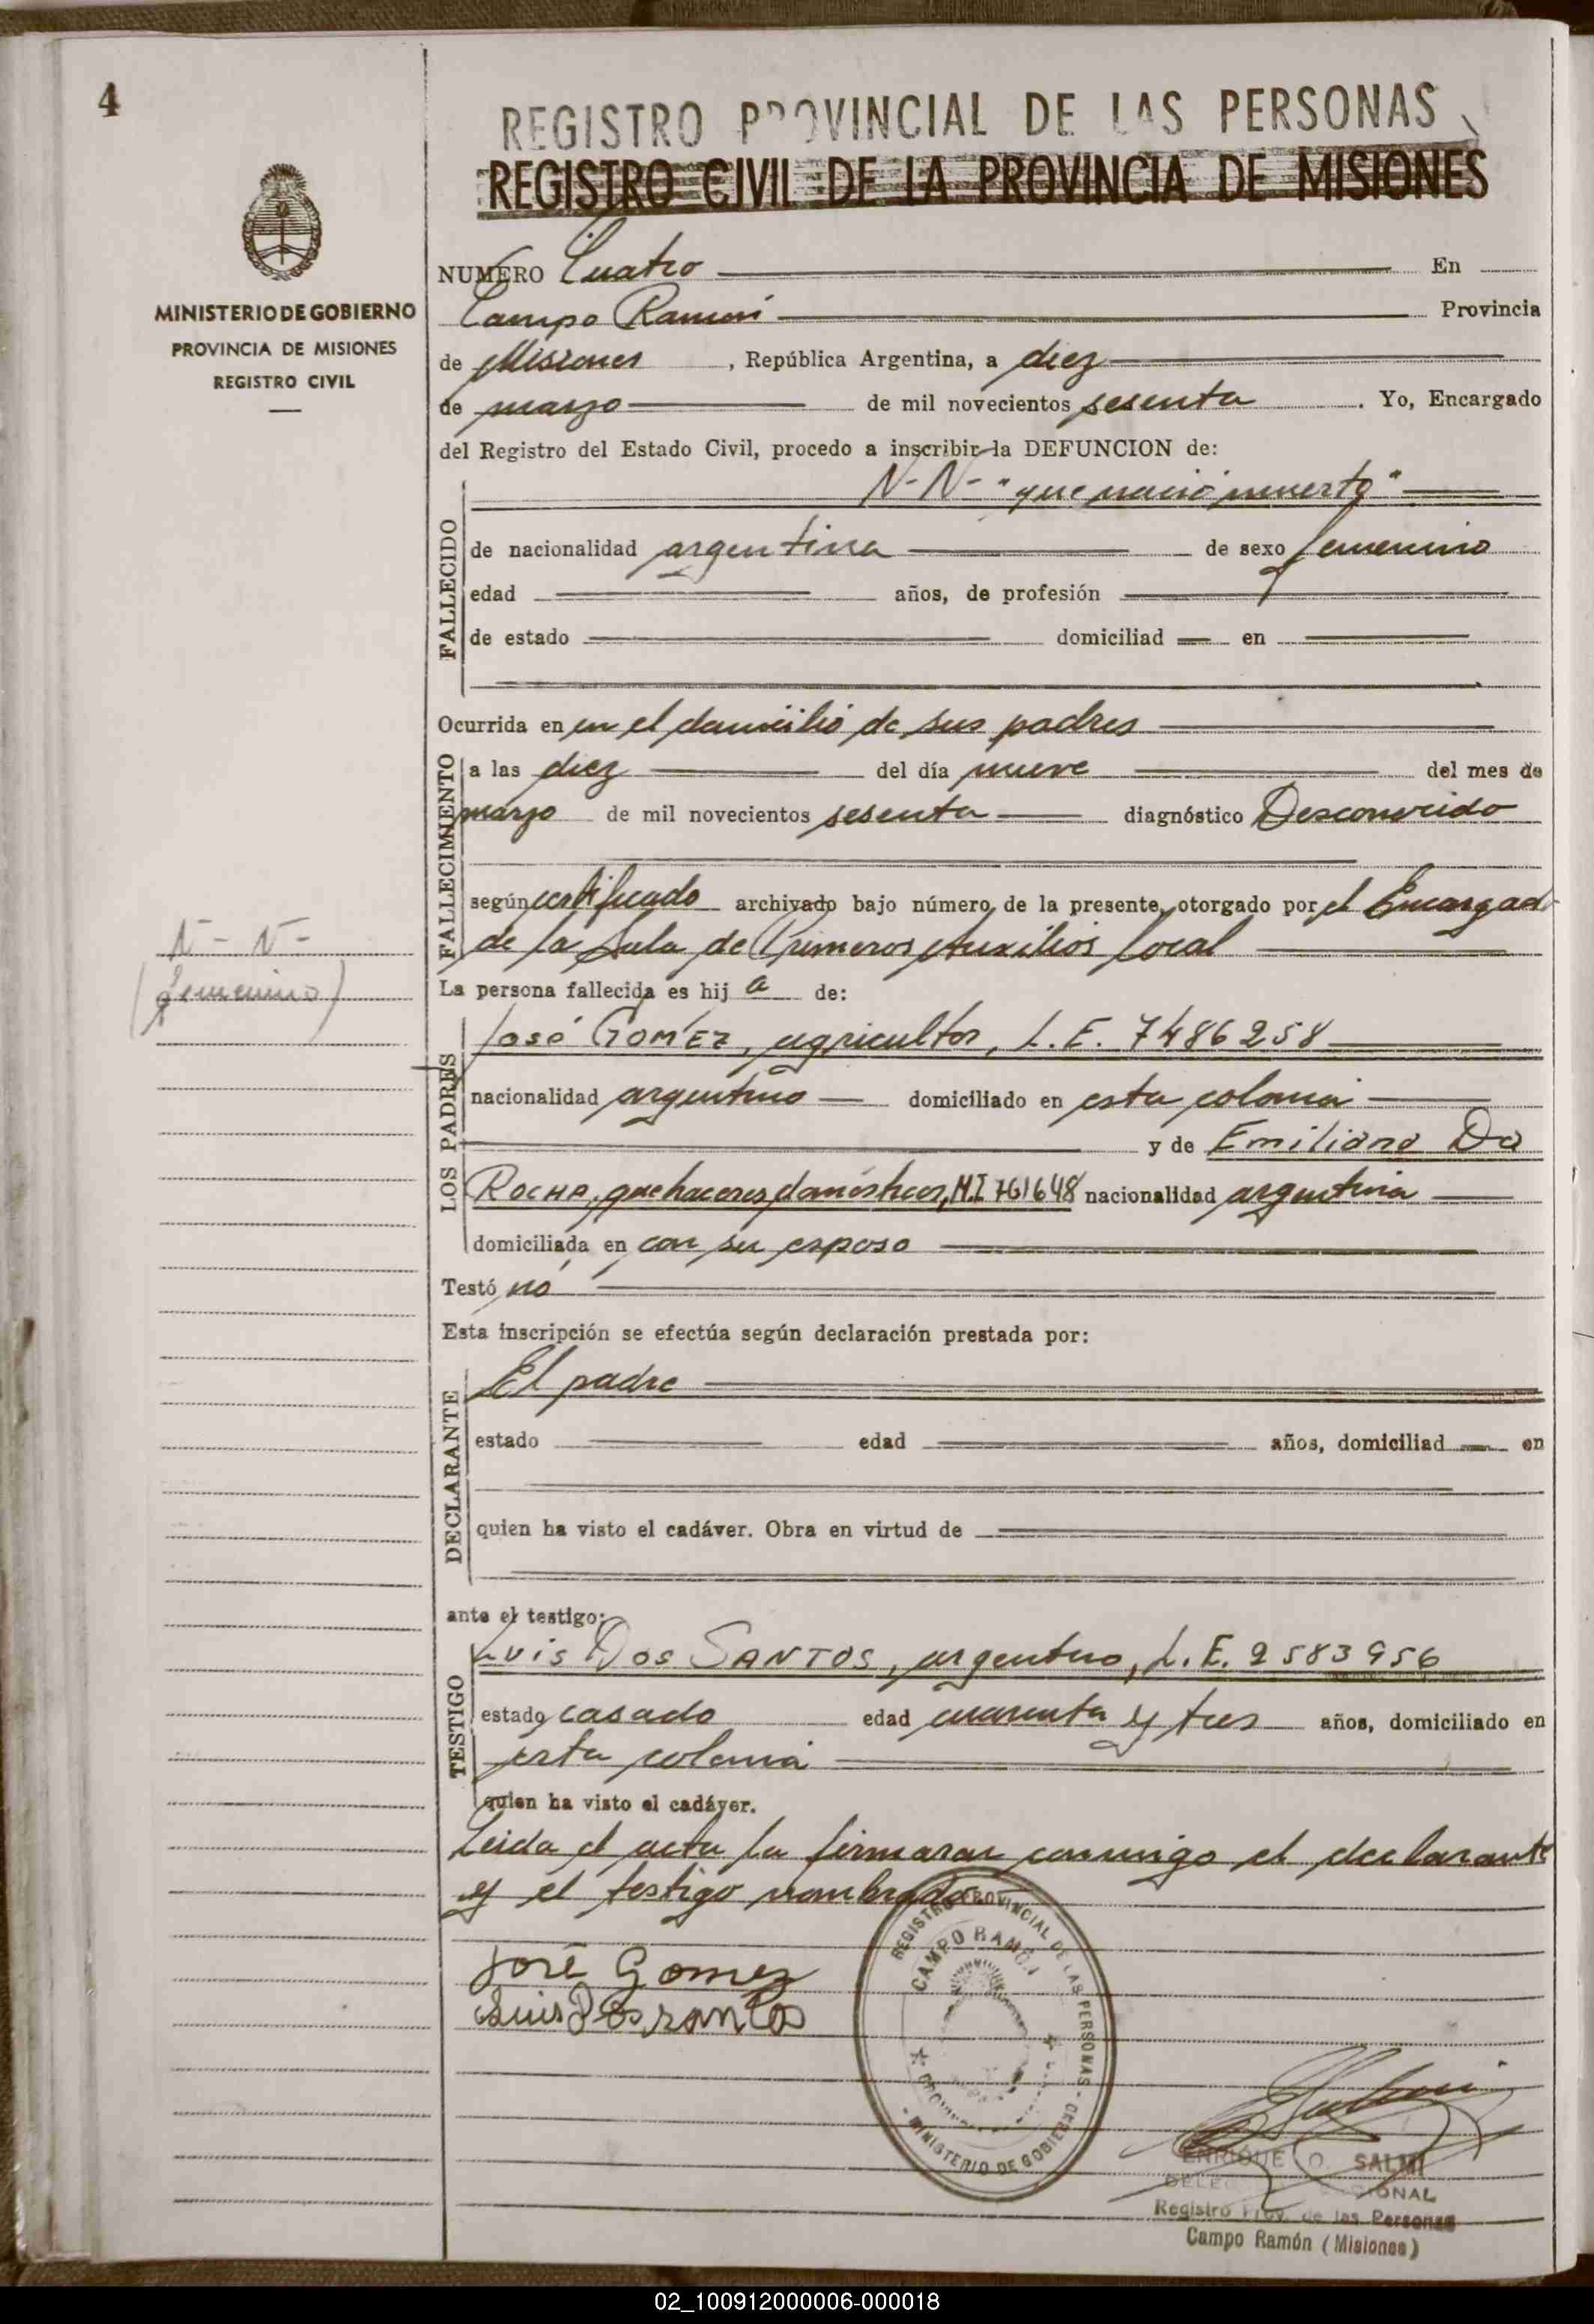 4
REGISTRO PROVINCIAL DE LAS PERSONAS
REGISTRO CIVIL DE LA PROVINCIA DE MISIONES
MINISTERIO DE GOBIERNO
PROVINCIA DE MISIONES
REGISTRO CIVIL
NUMERO Cuatro En
Campo Ramón Provincia
de Misiones, República Argentina, a diez
de marzo de mil novecientos sesenta. Yo, Encargado
del Registro del Estado Civil, procedo a inscribir la DEFUNCION de:
FALLECIDO
N-N- "que nació muerto"
de nacionalidad argentina de sexo femenino
edad años, de profesión
de estado domiciliad en
Ocurrida en en el domicilio de sus padres
FALLECIMIENTO
a las diez del día nueve del mes de
marzo de mil novecientos sesenta diagnóstico Desconocido
según certificado archivado bajo número de la presente, otorgado por el Encargado
de la Sala de Primeros Auxilios local
N-N-
(femenino)
La persona fallecida es hij a de:
LOS PADRES
José GOMEZ, agricultor, L.E. 7486258
nacionalidad argentino domiciliado en esta colonia
y de Emiliana Da
ROCHA, quehaceres domésticos, M.I 761648 nacionalidad argentina
domiciliada en con su esposo
Testó nó
Esta inscripción se efectúa según declaración prestada por:
DECLARANTE
El padre
estado edad años, domiciliad en
quien ha visto el cadáver. Obra en virtud de
ante el testigo:
TESTIGO
LUIS DOS SANTOS, argentino, L.E. 2583956
estado casado edad cuarenta y tres años, domiciliado en
esta colonia
quien ha visto el cadáver.
Leida el acta la firmaran conmigo el declarante
y el testigo nombrado
José Gomez
Luis Dos santos
REGISTRO PROVINCIAL DE LAS PERSONAS - MINISTERIO DE GOBIERNO
CAMPO RAMON
ENRIQUE O. SALMI
Registro Prov. de las Personas
Campo Ramón (Misiones)
02_100912000006-000018